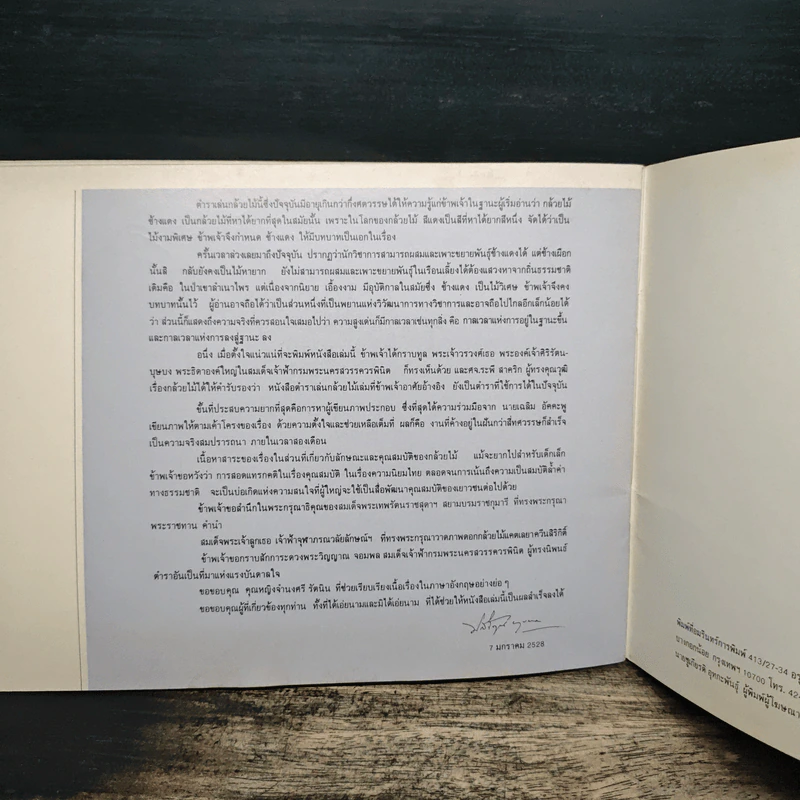 ตำราเล่นกล้วยไม้นี้ซึ่งปัจจุบันมีอายุเกินกว่ากึ่งศตวรรษได้ให้ความรู้แก่ข้าพเจ้าในฐานะผู้เริ่มอ่านว่า กล้วยไม้
ช้างแดง เป็นกล้วยไม้ที่หาได้ยากที่สุดในสมัยนั้น เพราะในโลกของกล้วยไม้ สีแดงเป็นสีที่หาได้ยากสีหนึ่ง จัดได้ว่าเป็น
ไม้งามพิเศษ ข้าพเจ้าจึงกำหนด ช้างแดง ให้มีบทบาทเป็นเอกในเรื่อง
ครั้นเวลาล่วงเลยมาถึงปัจจุบัน ปรากฏว่านักวิชาการสามารถผสมและเพาะขยายพันธุ์ช้างแดงได้ แต่ช้างเผือก
นั้นสิ กลับยังคงเป็นไม้หายาก ยังไม่สามารถผสมและเพาะขยายพันธุ์ในเรือนเลี้ยงได้ต้องแสวงหาจากถิ่นธรรมชาติ
เดิมคือ ในป่าเขาลำเนาไพร แต่เนื่องจากนิยาย เอื้องงาม มีอุบัติกาลในสมัยซึ่ง ช้างแดง เป็นไม้วิเศษ ข้าพเจ้าจึงคง
บทบาทนั้นไว้ ผู้อ่านอาจถือได้ว่าเป็นส่วนหนึ่งที่เป็นพยานแห่งวิวัฒนาการทางวิชาการและอาจถือไปไกลอีกเล็กน้อยได้
ว่า ส่วนนี้ก็แสดงถึงความจริงที่ควรสอนใจเสมอไปว่า ความสูงเด่นก็มีกาลเวลาเช่นทุกสิ่ง คือ กาลเวลาแห่งการอยู่ในฐานะขึ้น
และกาลเวลาแห่งการลงสู่ฐานะ ลง
อนึ่ง เมื่อตั้งใจแน่วแน่ที่จะพิมพ์หนังสือเล่มนี้ ข้าพเจ้าได้กราบทูล พระเจ้าวรวงศ์เธอ พระองค์เจ้าศิริรัตน-
บุษบง พระธิดาองค์ใหญ่ในสมเด็จเจ้าฟ้ากรมพระนครสวรรควรพินิต ก็ทรงเห็นด้วย และศจ.ระพี สาคริก ผู้ทรงคุณวุฒิ
เรื่องกล้วยไม้ได้ให้คำรับรองว่า หนังสือตำราเล่นกล้วยไม้เล่มที่ข้าพเจ้าอาศัยอ้างอิง ยังเป็นตำราที่ใช้การได้ในปัจจุบัน
ขั้นที่ประสบความยากที่สุดคือการหาผู้เขียนภาพประกอบ ซึ่งที่สุดได้ความร่วมมือจาก นายเฉลิม อัคคะพู
เขียนภาพให้ตามเค้าโครงของเรื่อง ด้วยความตั้งใจและช่วยเหลือเต็มที่ ผลก็คือ งานที่ค้างอยู่ในฝันกว่าสี่ทศวรรษก็สำเร็จ
เป็นความจริงสมปรารถนา ภายในเวลาสองเดือน
เนื้อหาสาระของเรื่องในส่วนที่เกี่ยวกับลักษณะและคุณสมบัติของกล้วยไม้ แม้จะยากไปสำหรับเด็กเล็ก
ข้าพเจ้าขอหวังว่า การสอดแทรกคติในเรื่องคุณสมบัติ ในเรื่องความนิยมไทย ตลอดจนการเน้นถึงความเป็นสมบัติล้ำค่า
ทางธรรมชาติ จะเป็นบ่อเกิดแห่งความสนใจที่ผู้ใหญ่จะใช้เป็นสื่อพัฒนาคุณสมบัติของเยาวชนต่อไปด้วย
ข้าพเจ้าขอสำนึกในพระกรุณาธิคุณของสมเด็จพระเทพรัตนราชสุดาฯ สยามบรมราชกุมารี ที่ทรงพระกรุณา
พระราชทาน คำนำ
สมเด็จพระเจ้าลูกเธอ เจ้าฟ้าจุฬาภรณวลัยลักษณ์ฯ ที่ทรงพระกรุณาวาดภาพดอกกล้วยไม้แคตเลยาควีนสิริกิติ์
ข้าพเจ้าขอกราบสักการะดวงพระวิญญาณ จอมพล สมเด็จเจ้าฟ้ากรมพระนครสวรรควรพินิต ผู้ทรงนิพนธ์
ตำราอันเป็นที่มาแห่งแรงบันดาลใจ
ขอขอบคุณ คุณหญิงจำนงศรี รัตนิน ที่ช่วยเรียบเรียงเนื้อเรื่องในภาษาอังกฤษอย่างย่อ ๆ
ขอขอบคุณผู้ที่เกี่ยวข้องทุกท่าน ทั้งที่ได้เอ่ยนามและมิได้เอ่ยนาม ที่ได้ช่วยให้หนังสือเล่มนี้เป็นผลสำเร็จลงได้
7 มกราคม 2528
พิมพ์ที่อมรินทร์การพิมพ์ 413/27-34
บางกอกน้อย กรุงเทพฯ 10700 โทร. 424
นายชูเกียรติ อุทกะพันธุ์ ผู้พิมพ์ผู้โฆษณา